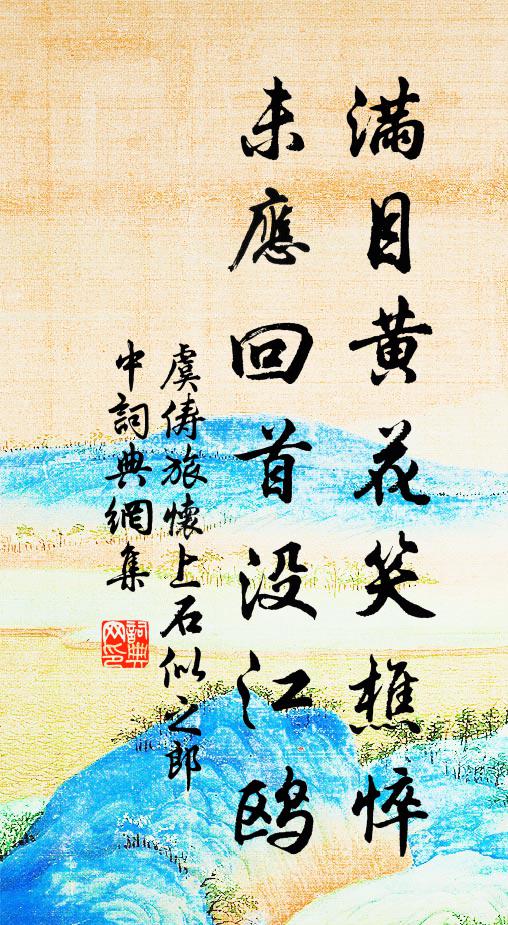 滿目黄花笑樵悴
未應回首没江鸥
虞俦旅懷上石似之郎
中詞典網集
詞典网印